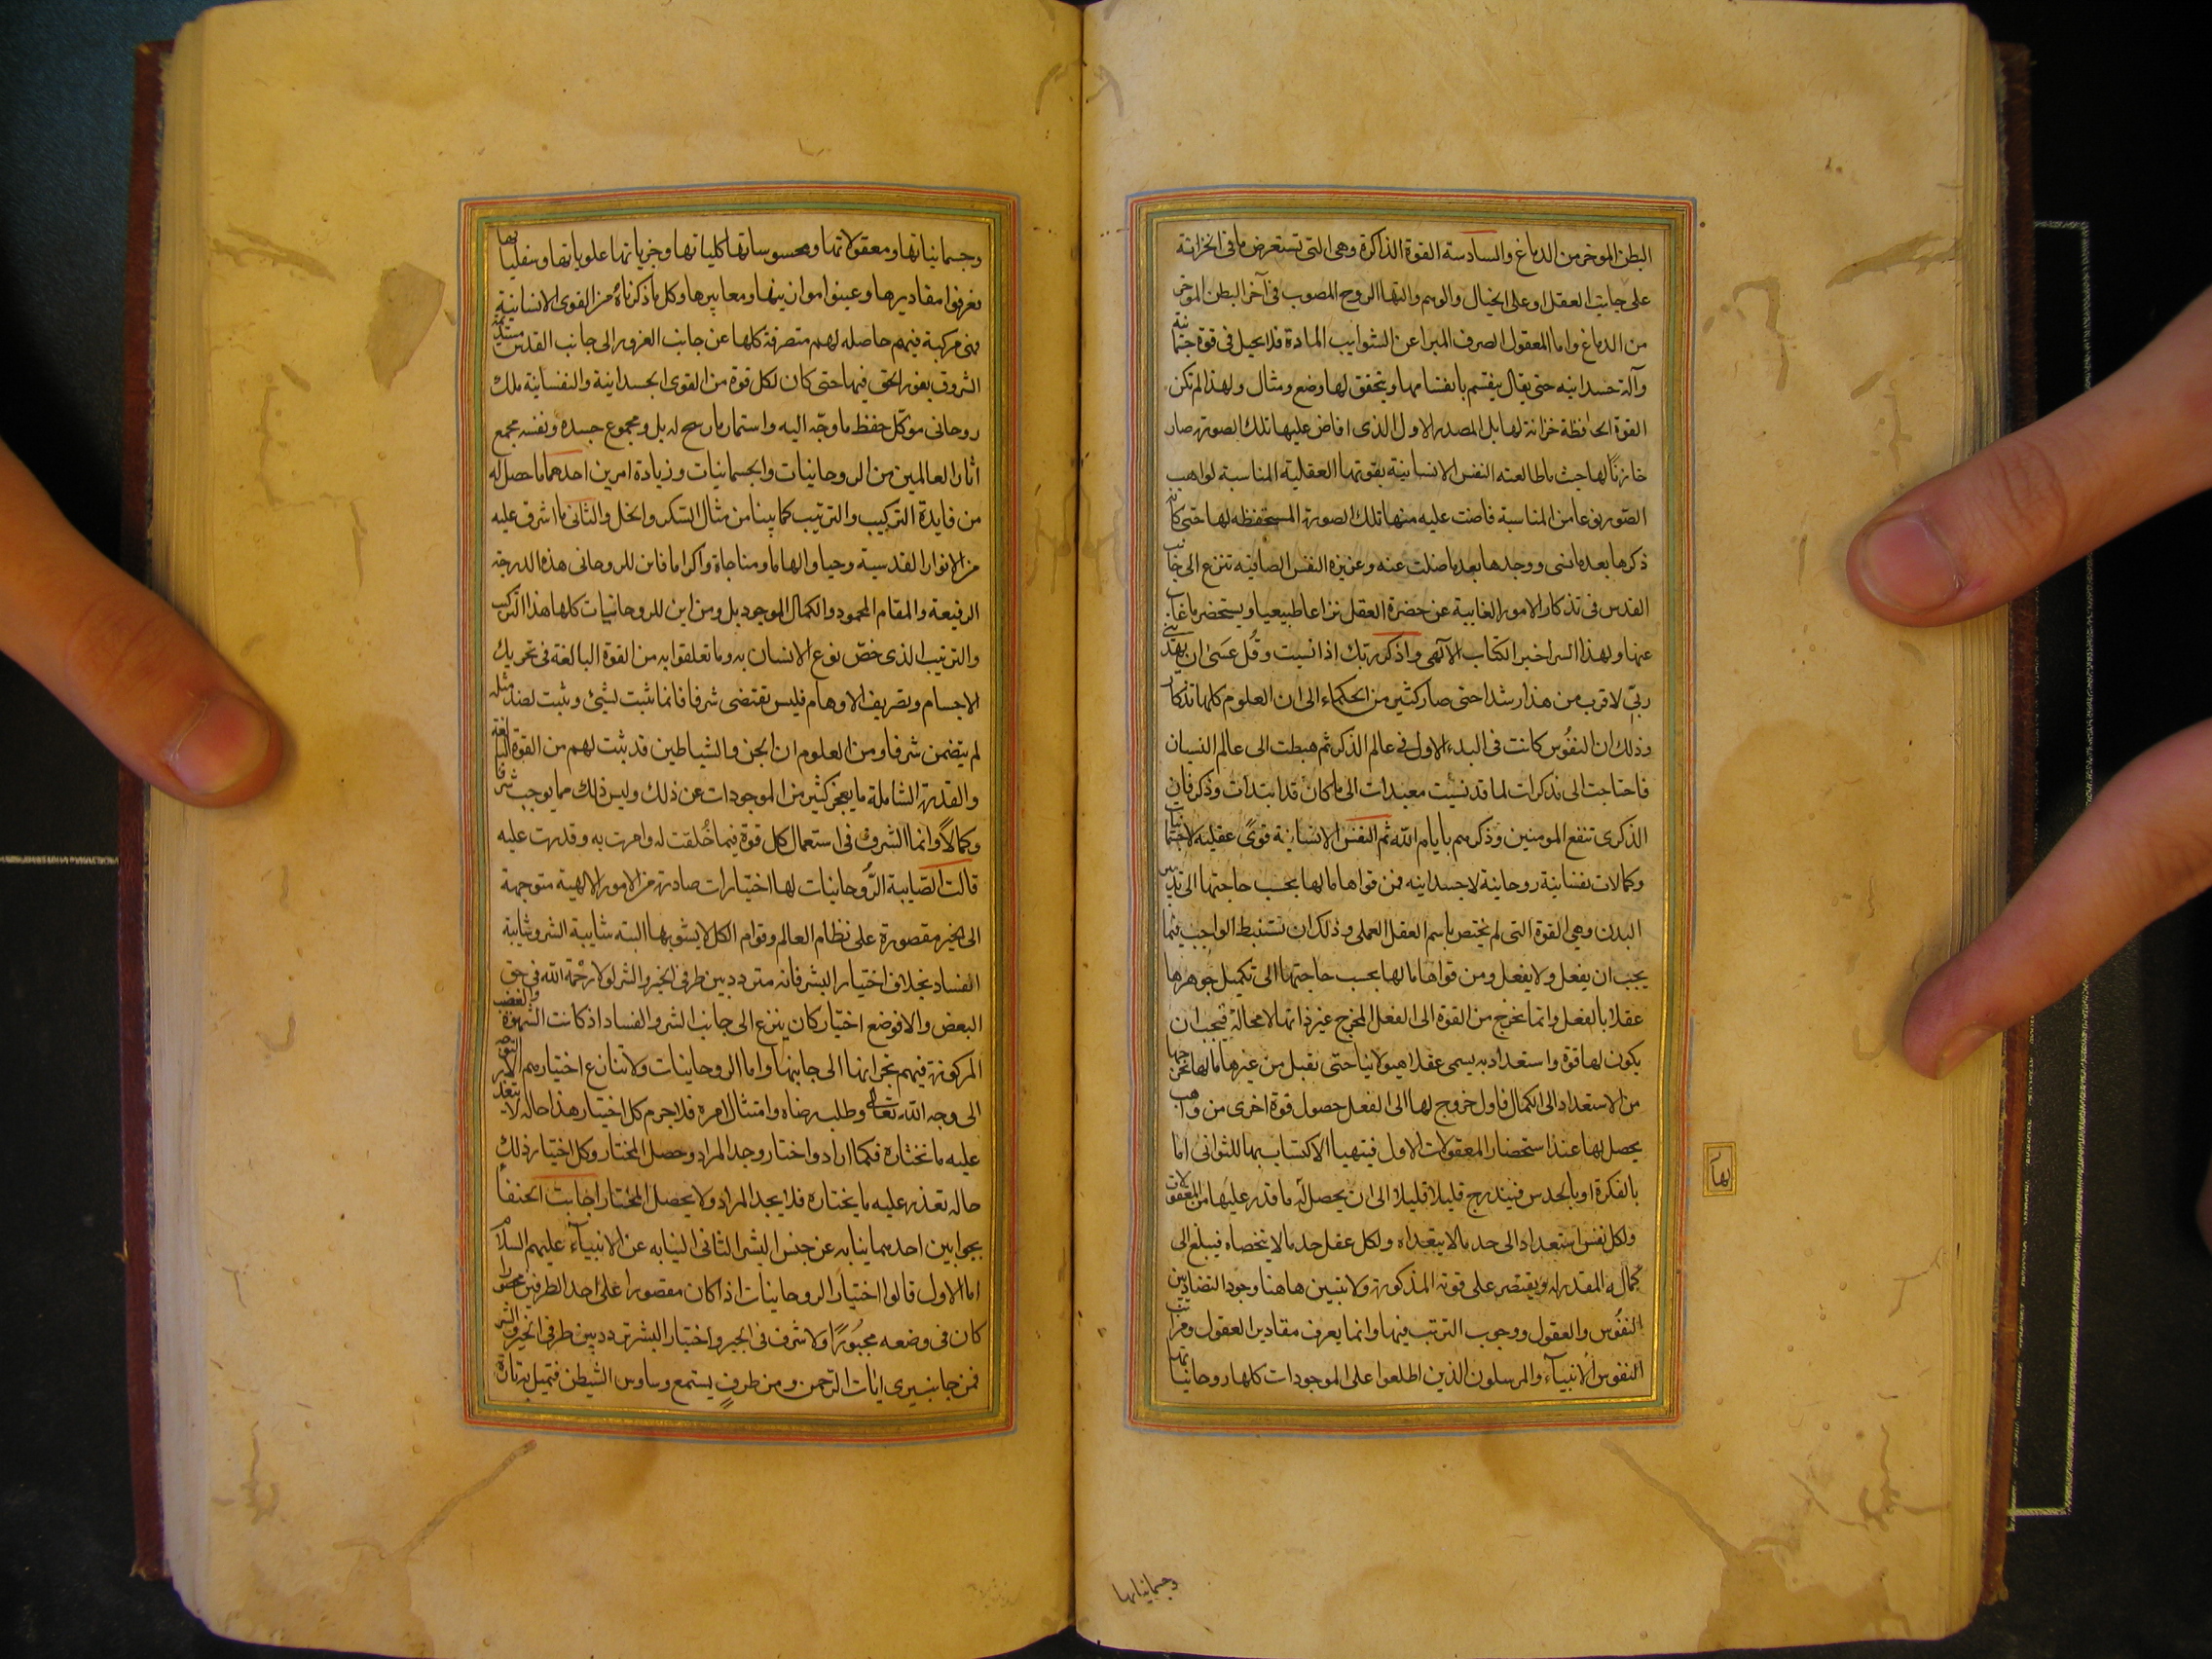 البطن الموخر من الدماغ والسادسة القوة الذاكرة وهى التى تستعرض ما فى الخزانة
على جانب العقل او على الخيال والوهم والتها الروح المصوب فى آخر البطن الموخر
من الدماغ واما المعقول الصرف المبرا عن الشوايب المادة فلا يحيل فى قوة جثمانية
وآلة جسدانيه حتى يقال ينقسم بانقسامها ويتحقق لها وضع ومثال ولهذا لم تكن
القوة الحافظة خزانة لها بل المصدر الاول الذى افاض عليها تلك الصورة صار
خازنًا لها حيث ما طالعته النفس الانسانية بقوتها العقلية المناسبة لواهب
الصّور نوعا من المناسبة فاضت عليه منها تلك الصورة المستحفظه لها حتى كانه
ذكرها بعد ما نسى ووجدها بعد ما ضلت عنه وغريزه النفس الصافيه تنزع الى جانب
القدس فى تذكار الامور الغايبة عن حضرة العقل نزاعا طبيعيا ويستحضر ما غاب
عنها ولهذا السر اخبر الكتاب الآلهى واذكر ربك اذا نسيت وقُل عَسَى ان يهدينى
ربّى لاقرب من هذا رشدا حتى صار كثير من الحكماء الى ان العلوم كلها تذكار
وذلك ان النفُوس كانت فى البدء الاول فى عالم الذكر ثم هبطت الى عالم النسيان
فاحتاجت الى مذكرات لما قد نسيت معيدات الى ما كان قد ابتدات وذكر فان
الذكرى تنفع المومنين وذكرهم بايام الله ثم للنفس الانسانية قوىً عقليه لا جثمانية
وكمالات نفسانية روحانية لا جسدانيه فمن قواها ما لها بحسب حاجتها الى تدبير
البدن وهى القوة التى لم يختص باسم العقل العملى وذلك ان تستنبط الواجب فيما
يجب ان يفعل ولا يفعل ومن قواها ما لها بحسب حاجتها الى تكميل جوهرها
عقلا بالفعل وانما تخرج من القوة الى الفعل المخرج غير ذاتها لا محالة فيجب ان
يكون لها قوة واستعداد به يسمى عقلا هيولانيا حتى يقبل من غيرها ما لها تخرجها
من الاستعداد الى الكمال فاول خروج لها الى الفعل حصول قوة اخرى من واهب
يحصل بها عند استحضار المعقولات الاول فيتهيا الاكتساب بها للثوانى اما
بالفكرة او بالحدس فيتدرج قليلا قليلا الى ان يحصل له ما قدر عليها من المعقولات
ولكل نفس استعداد الى حد ما لا يتعداه ولكل عقل حد ما لا يتخطاه فيبلغ الى
كماله المقدر له ويقتصر على قوته المذكورة ولا تبين هاهنا وجود التضاد بين
النفوس والعقول ووجوب الترتب فيها وانما يعرف مقادير العقول ومراتب
النفوس الانبيآء والمرسلون الذين اطلعوا على الموجودات كلها روحانياتها
لها
وجسمانياتها
وجسمانياتها ومعقولاتها ومحسوساتها كلياتها وجزياتها علوياتها وسفلياتها
فعرفوا مقاديرها وعينوا موازينها ومعاييرها وكل ما ذكرناه من القوى الانسانية
فهى مركبة فيهم حاصله لهم متصرفة كلها عن جانب الغرور الى جانب القدس مستديمة
الشروق بنور الحق فيها حتى كان لكل قوة من القوى الجسدانية والنفسانية ملك
روحانى موكل حفظ ما وجّه اليه واستمار ما رسح له بل ومجموع جسده ونفسه مجمع
اثار العالمين من الروحانيات والجسمانيات وزيادة امرين احدهما ما حصل له
من فايدة التركيب والترتيب كما بينا من مثال السّكر والخل والثانى ما اشرق عليه
من الانوار القدسية وحيا والهاما ومناجاة واكراما فاين للروحانى هذه الدرجة
الرفيعة والمقام المحمود والكمال الموجود بل ومن اين للروحانيات كلها هذا التركيب
والترتيب الذى خصّ نوع الانسان به وما تعلقوا به من القوة البالغة فى تحريك
الاجسام وتصريف الاوهام فليس تقتضى شرفا فانما ثبت لشئ وثبت لضده مثله
لم يتضمن شرفا ومن العلوم ان الجن والشياطين قد ثبت لهم من القوة البالغة
والقدرة الشاملة ما يعجز كثير من الموجودات عن ذلك وليس ذلك مما يوجب شرفا
وكمالاً وانما الشرف فى استعمال كل قوة فيما خُلقت له وامرت به وقدرت عليه
قالت الصّابية الرُّوحانيات لها اختيارات صادرة من الامور الالهية متوجهة
الى الخير مقصورة على نظام العالم وقوام الكل لا يشوبها البته شايبة الشر وشايبة
الفساد بخلاف اختيار البشر فانه متردد بين طرفى الخير والشر لولا رحمة الله فى حق
البعض والا فوضع اختيار كان ينزع الى جانب الشر والفساد اذ كانت الشهوة والغضب
المركوزة فيهم يجرانها الى جانبها واما الروحانيات ولا تنازع اختيارهم الا التوجه
الى وجه الله تعالى وطلب رضاه وامتثال امره فلا جرم كل اختيار هذا حاله لا يتعذر
عليه ما يختاره فكما اراد واختار وجد المراد وحصل المختار وكل اختيار ذلك
حاله تعذر عليه ما يختاره فلا يجد المراد ولا يحصل المختار اجابت الحنفآ
بجوابين احدهما نيابة عن جنس البشر الثانى النيابه عن الانبيآء عليهم السلام
اما الاول قالوا اختيار الروحانيات اذا كان مقصورا على احد الطرفين محصورا
كان فى وضعه مجبورًا ولا شرف فى الجبر واختيار البشر تردد بين طرفى الخير والشر
فمن جانب يرى ايات الرّحمن ومن طرف يستمع وساوس الشيطن فتميل به تارة